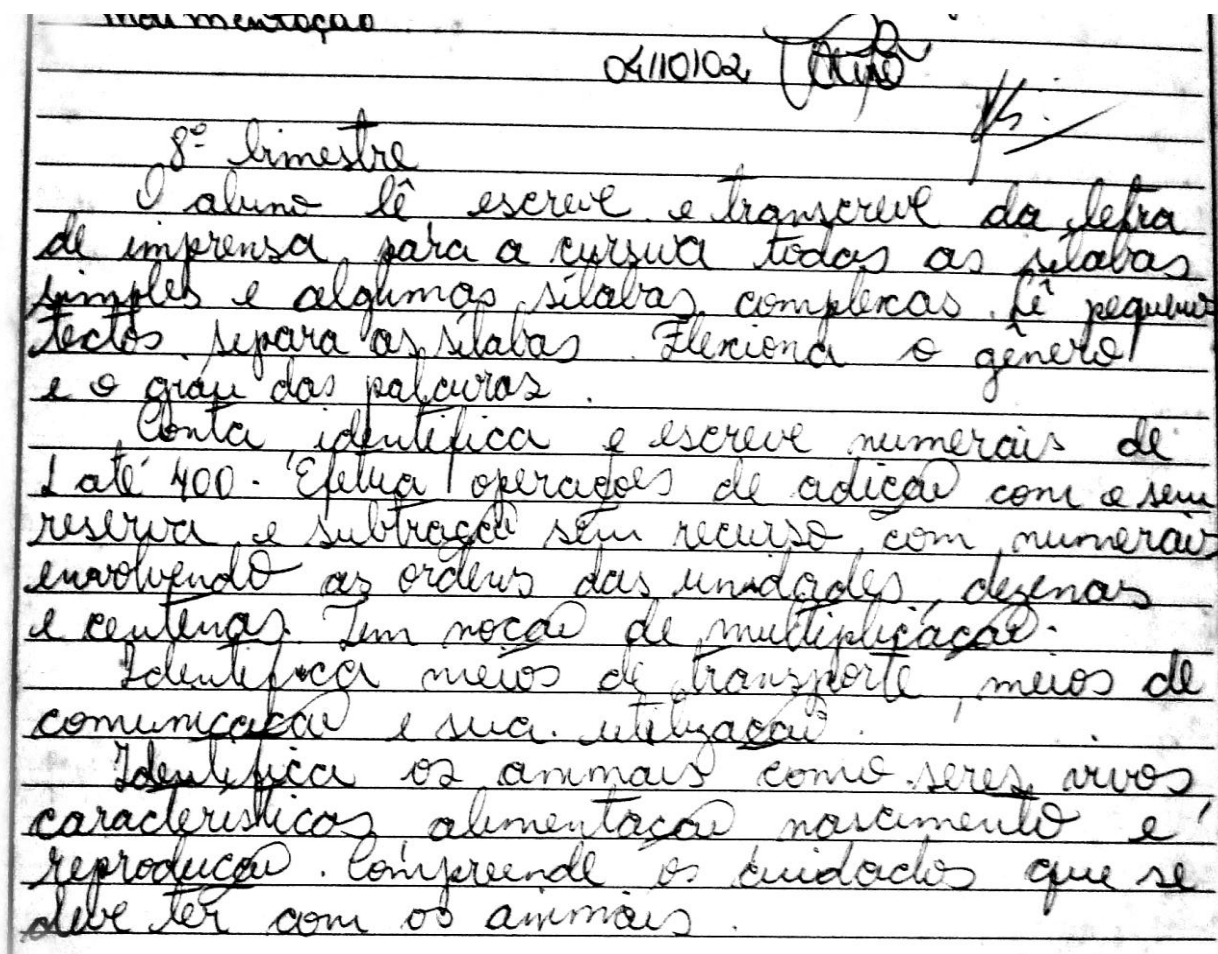 04/10/02
8º bimestre
O aluno lê escreve e transcreve da letra
de imprensa para a cursiva todas as sílabas
simples e algumas sílabas complexas. Lê pequenos
textos separa as sílabas. Flexiona o gênero
e o grau das palavras.
Conta identifica e escreve numerais de
1 até 400. Efetua operações de adição com e sem
reserva e subtração sem recurso com numerais
envolvendo as ordens das unidades, dezenas
e centenas. Tem noção de multiplicação.
Identifica meios de transporte, meios de
comunicação e sua utilização.
Identifica os animais como seres vivos,
características alimentação nascimento e
reprodução. Compreende os cuidados que se
deve ter com os animais.